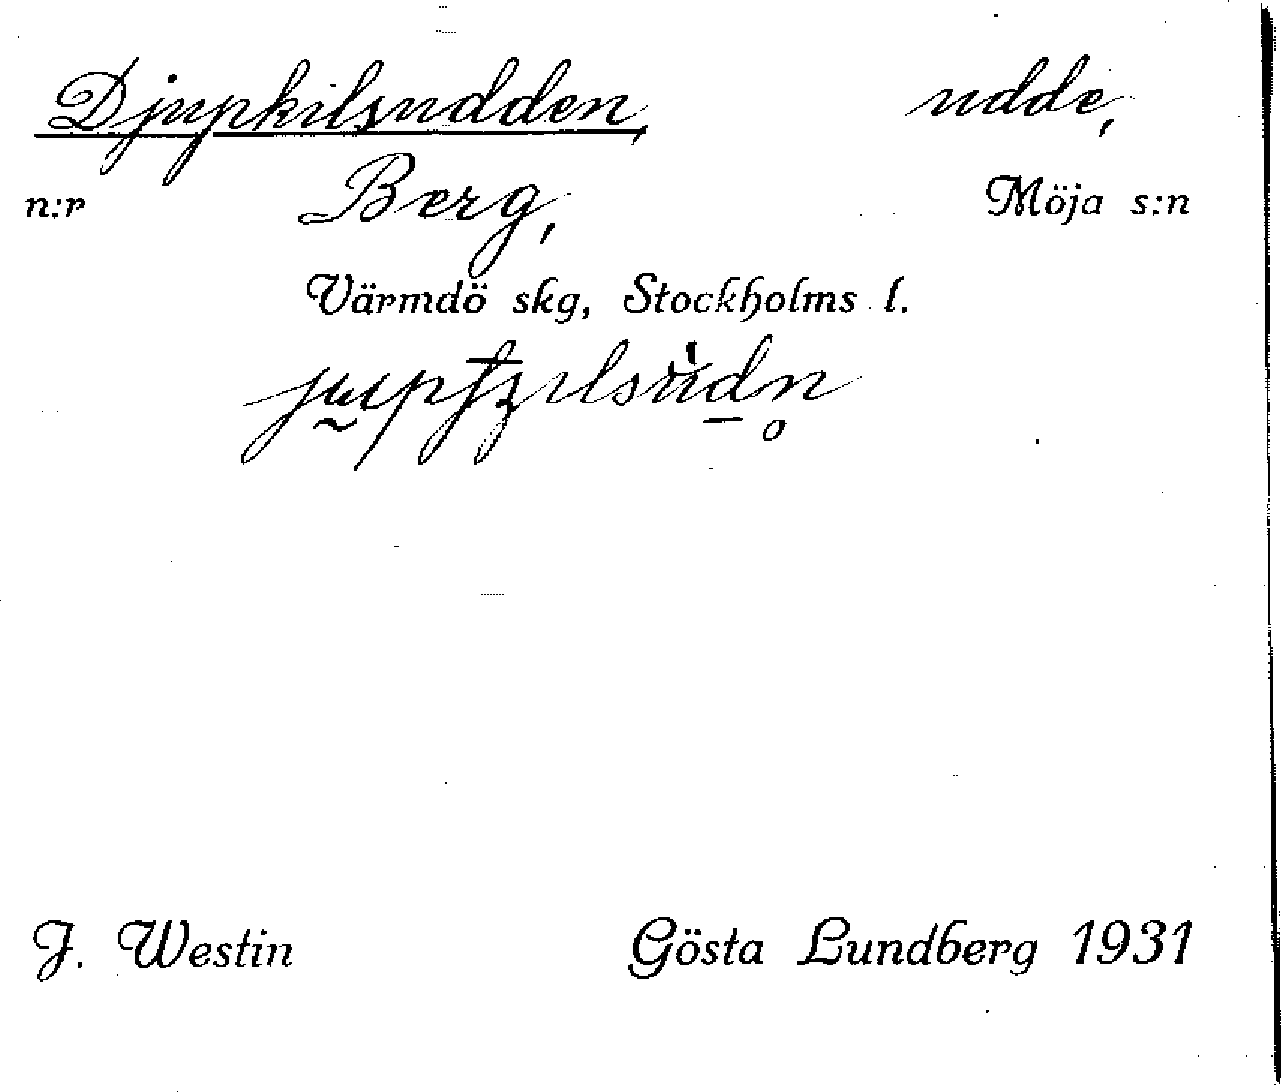 Djupkilsudden, udde,
n:r Berg, Möja s:n
Värmdö skg, Stockholms l.
J. Westin Gösta Lundberg 1931